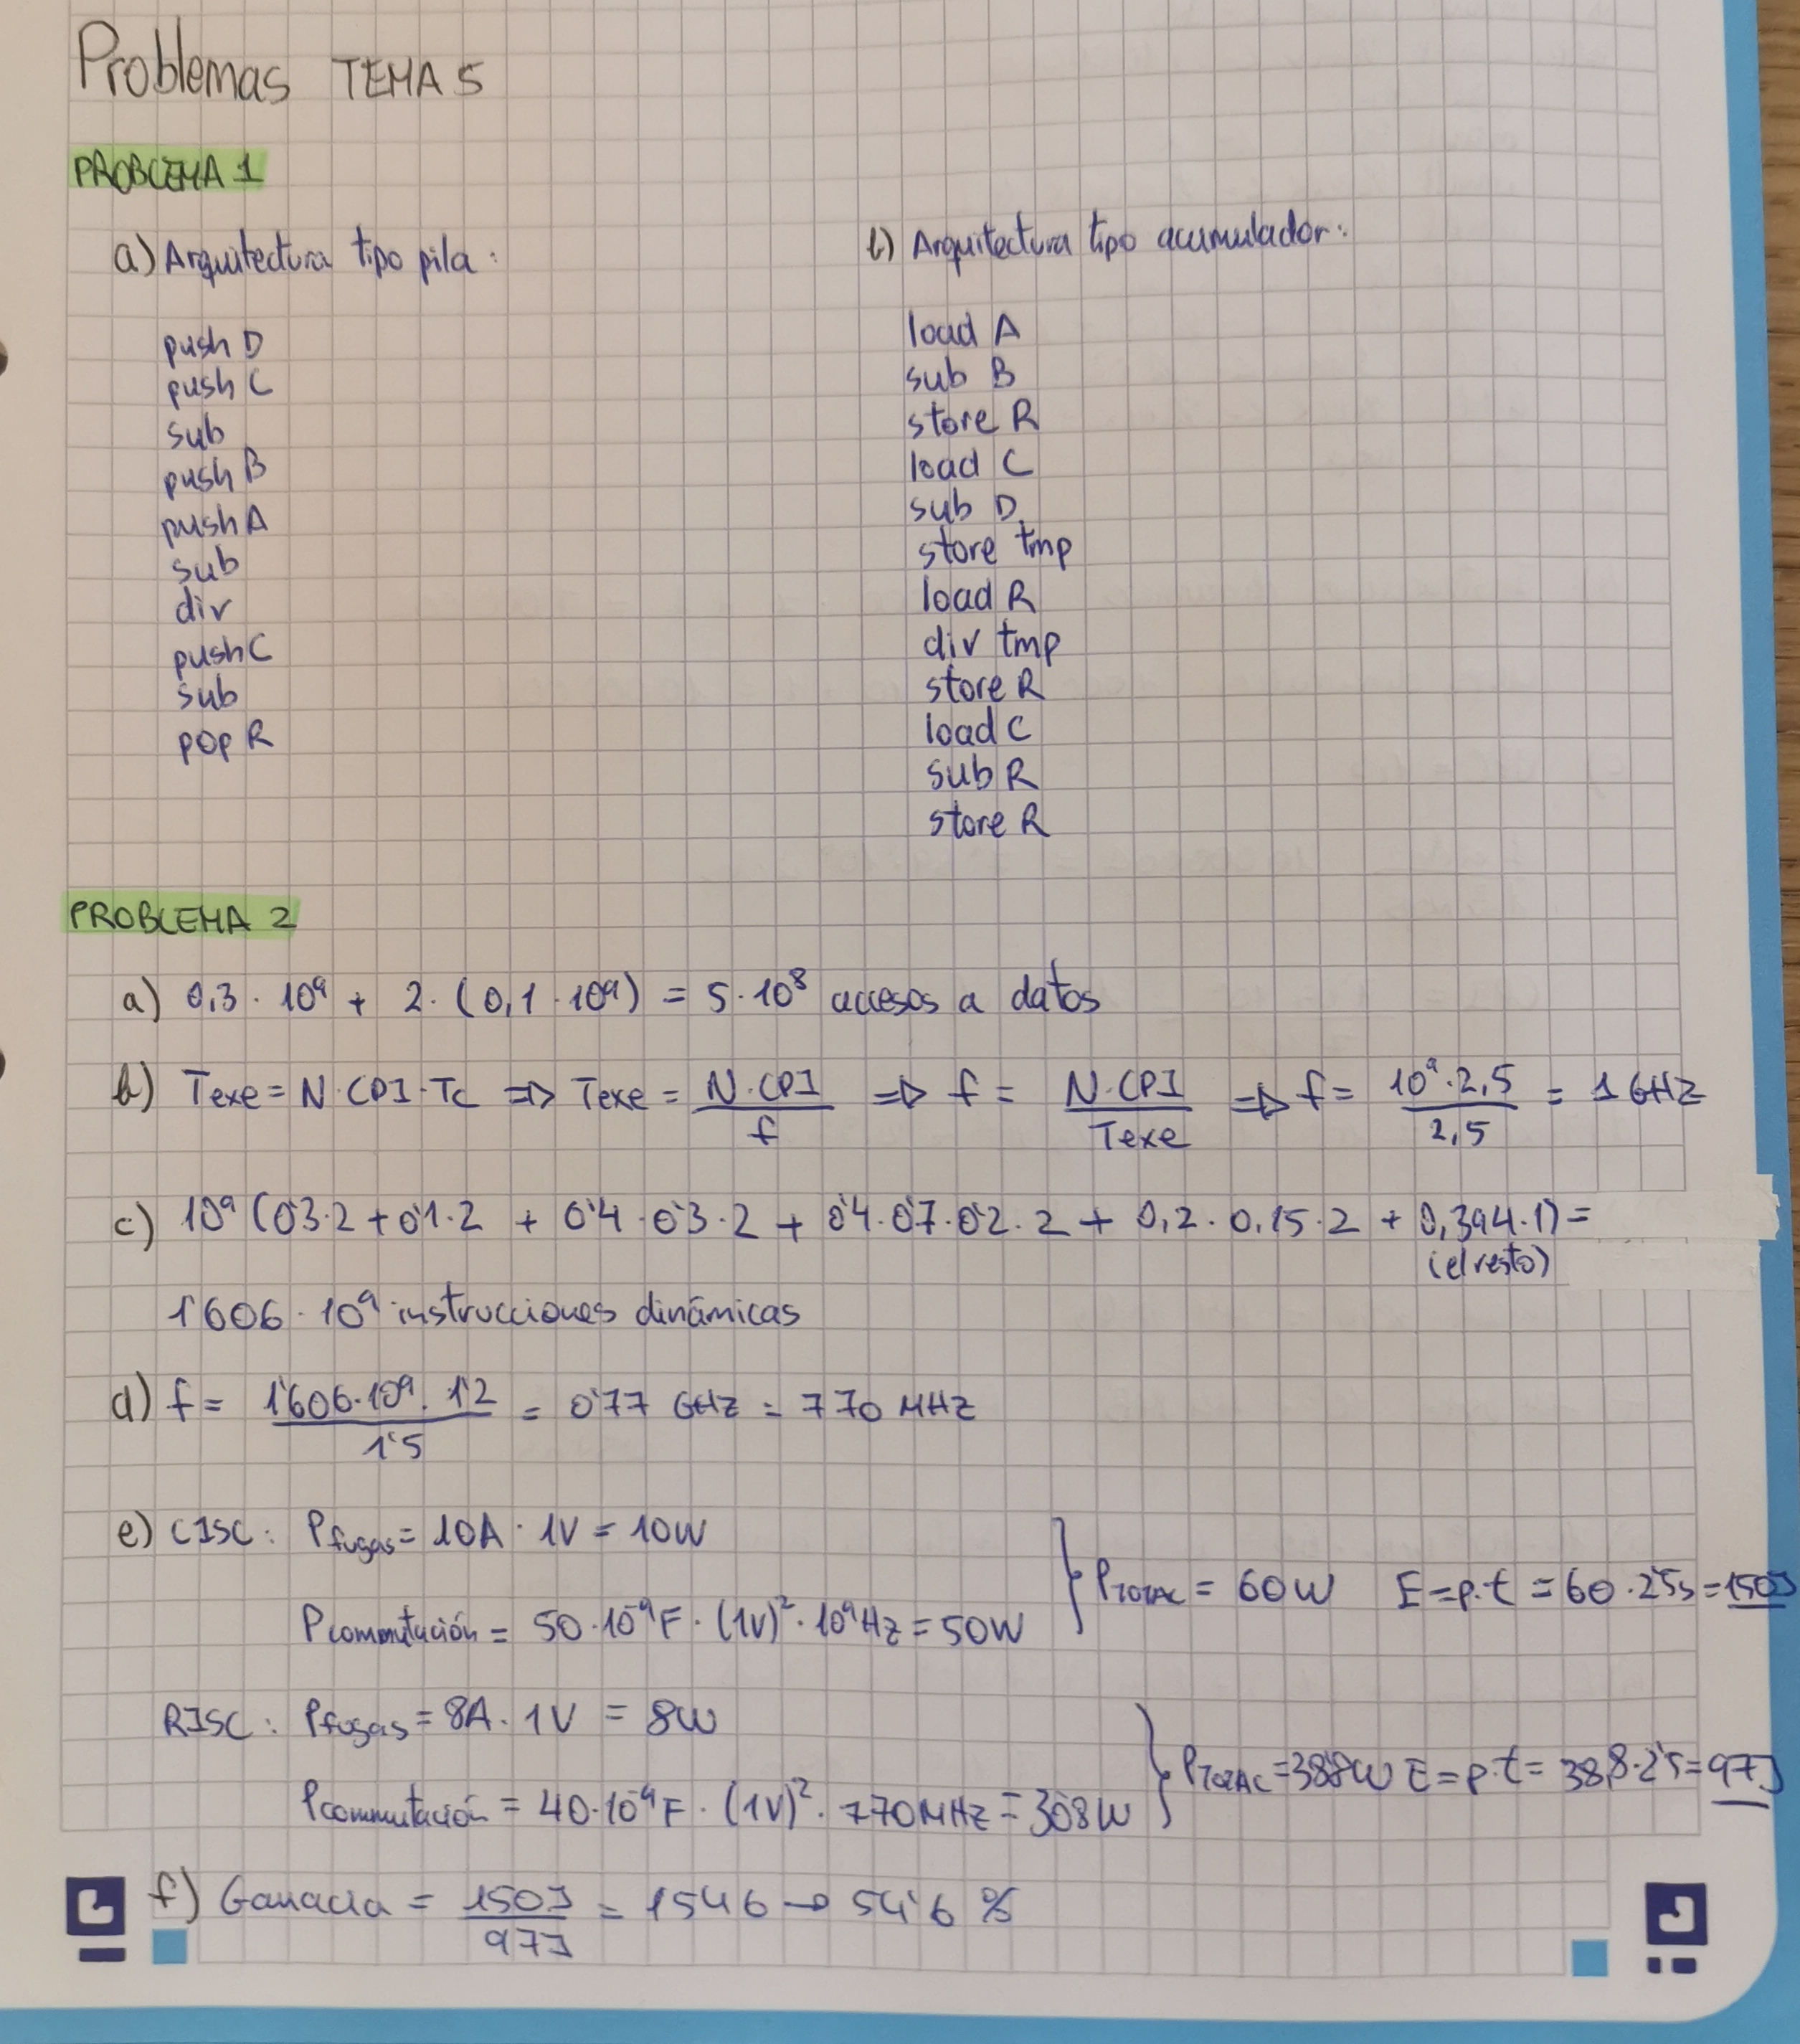 Problemas TEMA 5
PROBLEMA 1
a) Arquitectura tipo pila:
push D
push C
sub
push B
push A
sub
div
push C
sub
pop R
b) Arquitectura tipo acumulador:
load A
sub B
store R
load C
sub D
store tmp
load R
div tmp
store R
load C
sub R
store R
PROBLEMA 2
a) 0,3 · 10⁹ + 2 · (0,1 · 10⁹) = 5 · 10⁸ accesos a datos
b) Texe = N · CPI · Tc => Texe = N · CPI / f => f = N · CPI / Texe => f = 10⁹ · 2,5 / 2,5 = 1 GHz
c) 10⁹ (0'3·2 + 0'1·2 + 0'4·0'3·2 + 0'4·0'7·0'2·2 + 0,2·0,15·2 + 0,394·1) =
(el resto)
1'606 · 10⁹ instrucciones dinámicas
d) f = 1'606·10⁹ · 1'2 / 1'5 = 0'77 GHz = 770 MHz
e) CISC: Pfugas = 10A · 1V = 10W
Pcommutación = 50·10⁻⁹F · (1V)² · 10⁹Hz = 50W
PTOTAL = 60W E = p·t = 60·2'5s = 150J
RISC: Pfugas = 8A · 1V = 8W
Pcommutación = 40·10⁻⁹F · (1V)² · 770MHz = 30'8W
PTOTAL = 38'8W E = p·t = 38,8·2'5 = 97J
f) Ganacia = 150J / 97J = 1'546 → 54'6 %